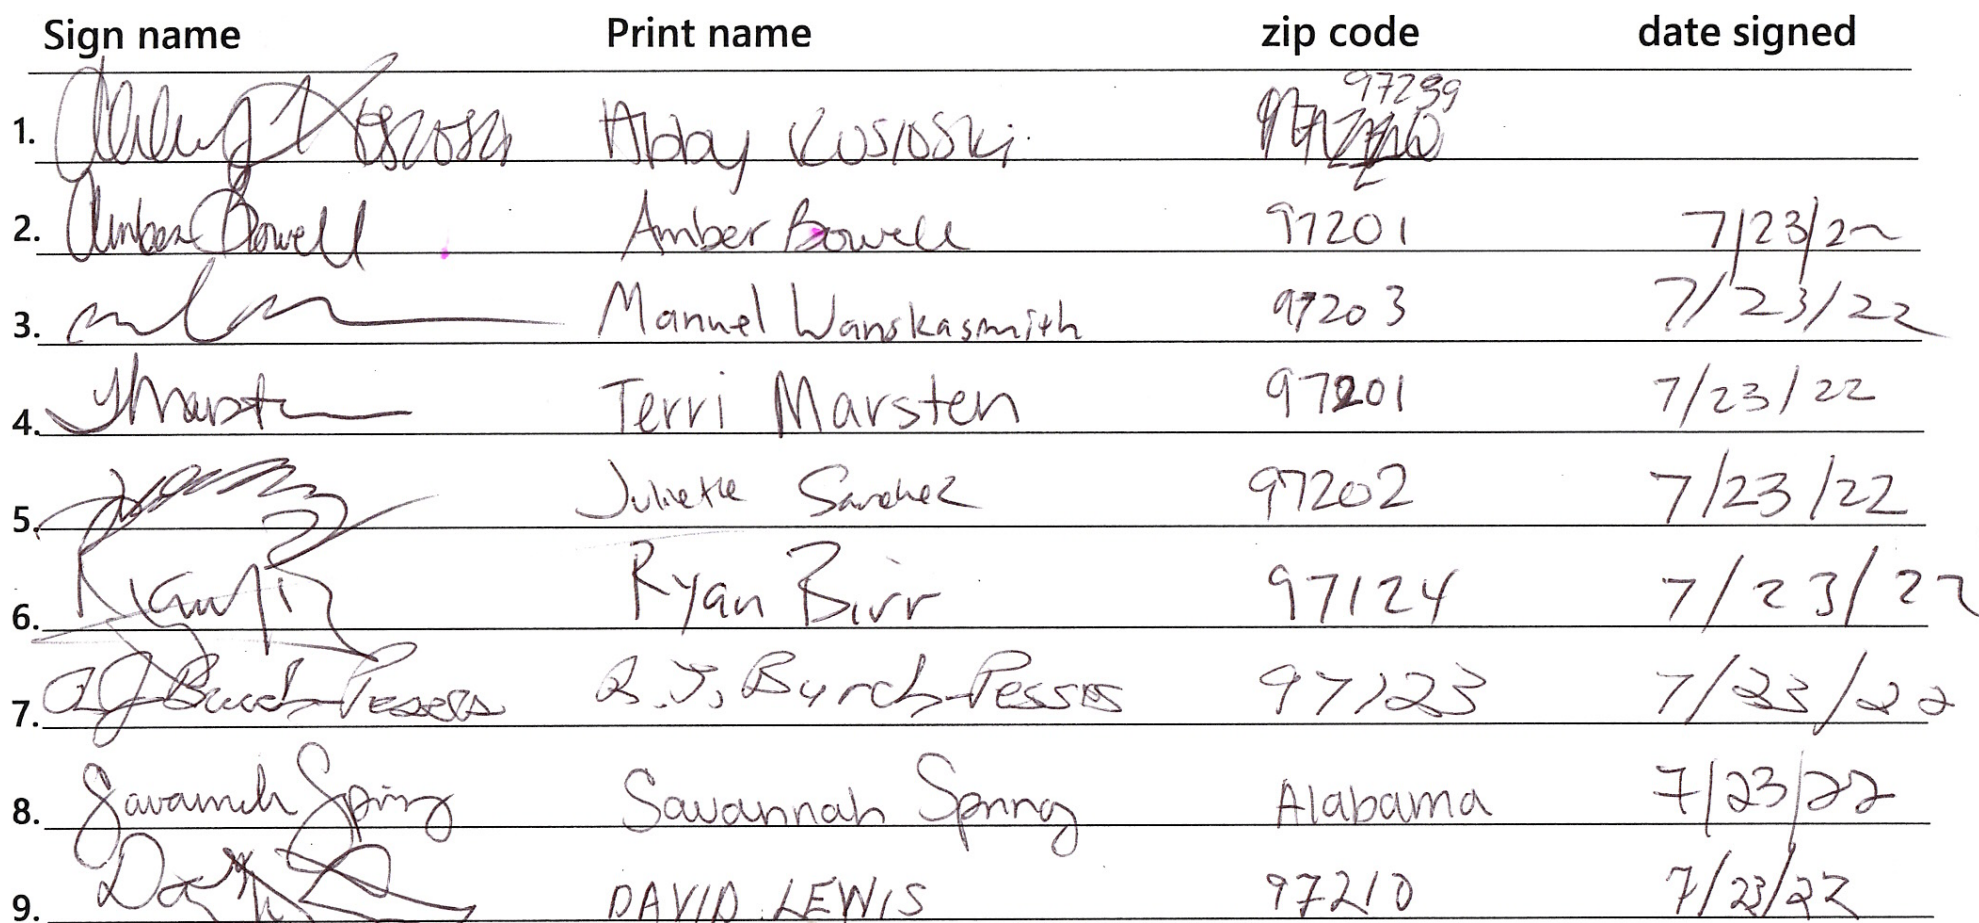 Sign name Print name zip code date signed
1. Abby Kosioski 97239
2. Amber Bowell Amber Bowell 97201 7/23/22
3. Manuel Wanskasmith 97203 7/23/22
4. TMarst Terri Marsten 97201 7/23/22
5. Juliette Sanchez 97202 7/23/22
6. Ryan Birr 97124 7/23/22
7. Burch-Pesses Burch-Pesses 97123 7/23/22
8. Savannah Spring Savannah Spring Alabama 7/23/22
9. DAVID LEWIS 97210 7/23/22